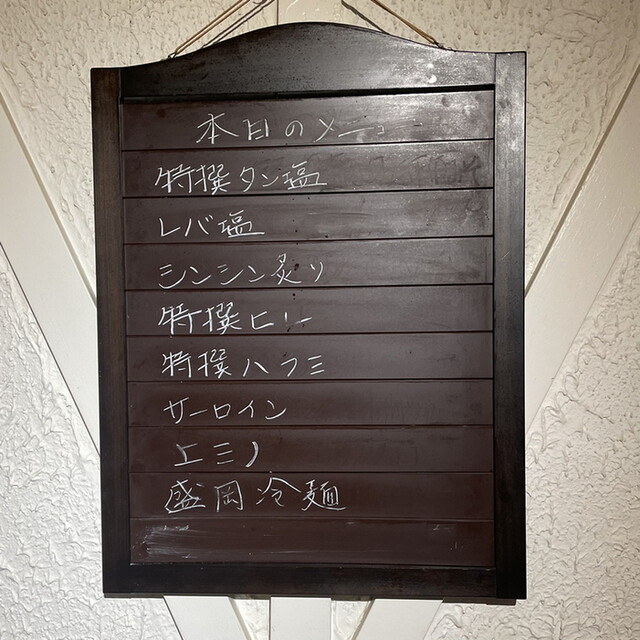 本日のメニュー
特撰タン塩
レバ塩
シンシン炙り
特撰ヒレ
特撰ハラミ
サーロイン
上ミノ
盛岡冷麺